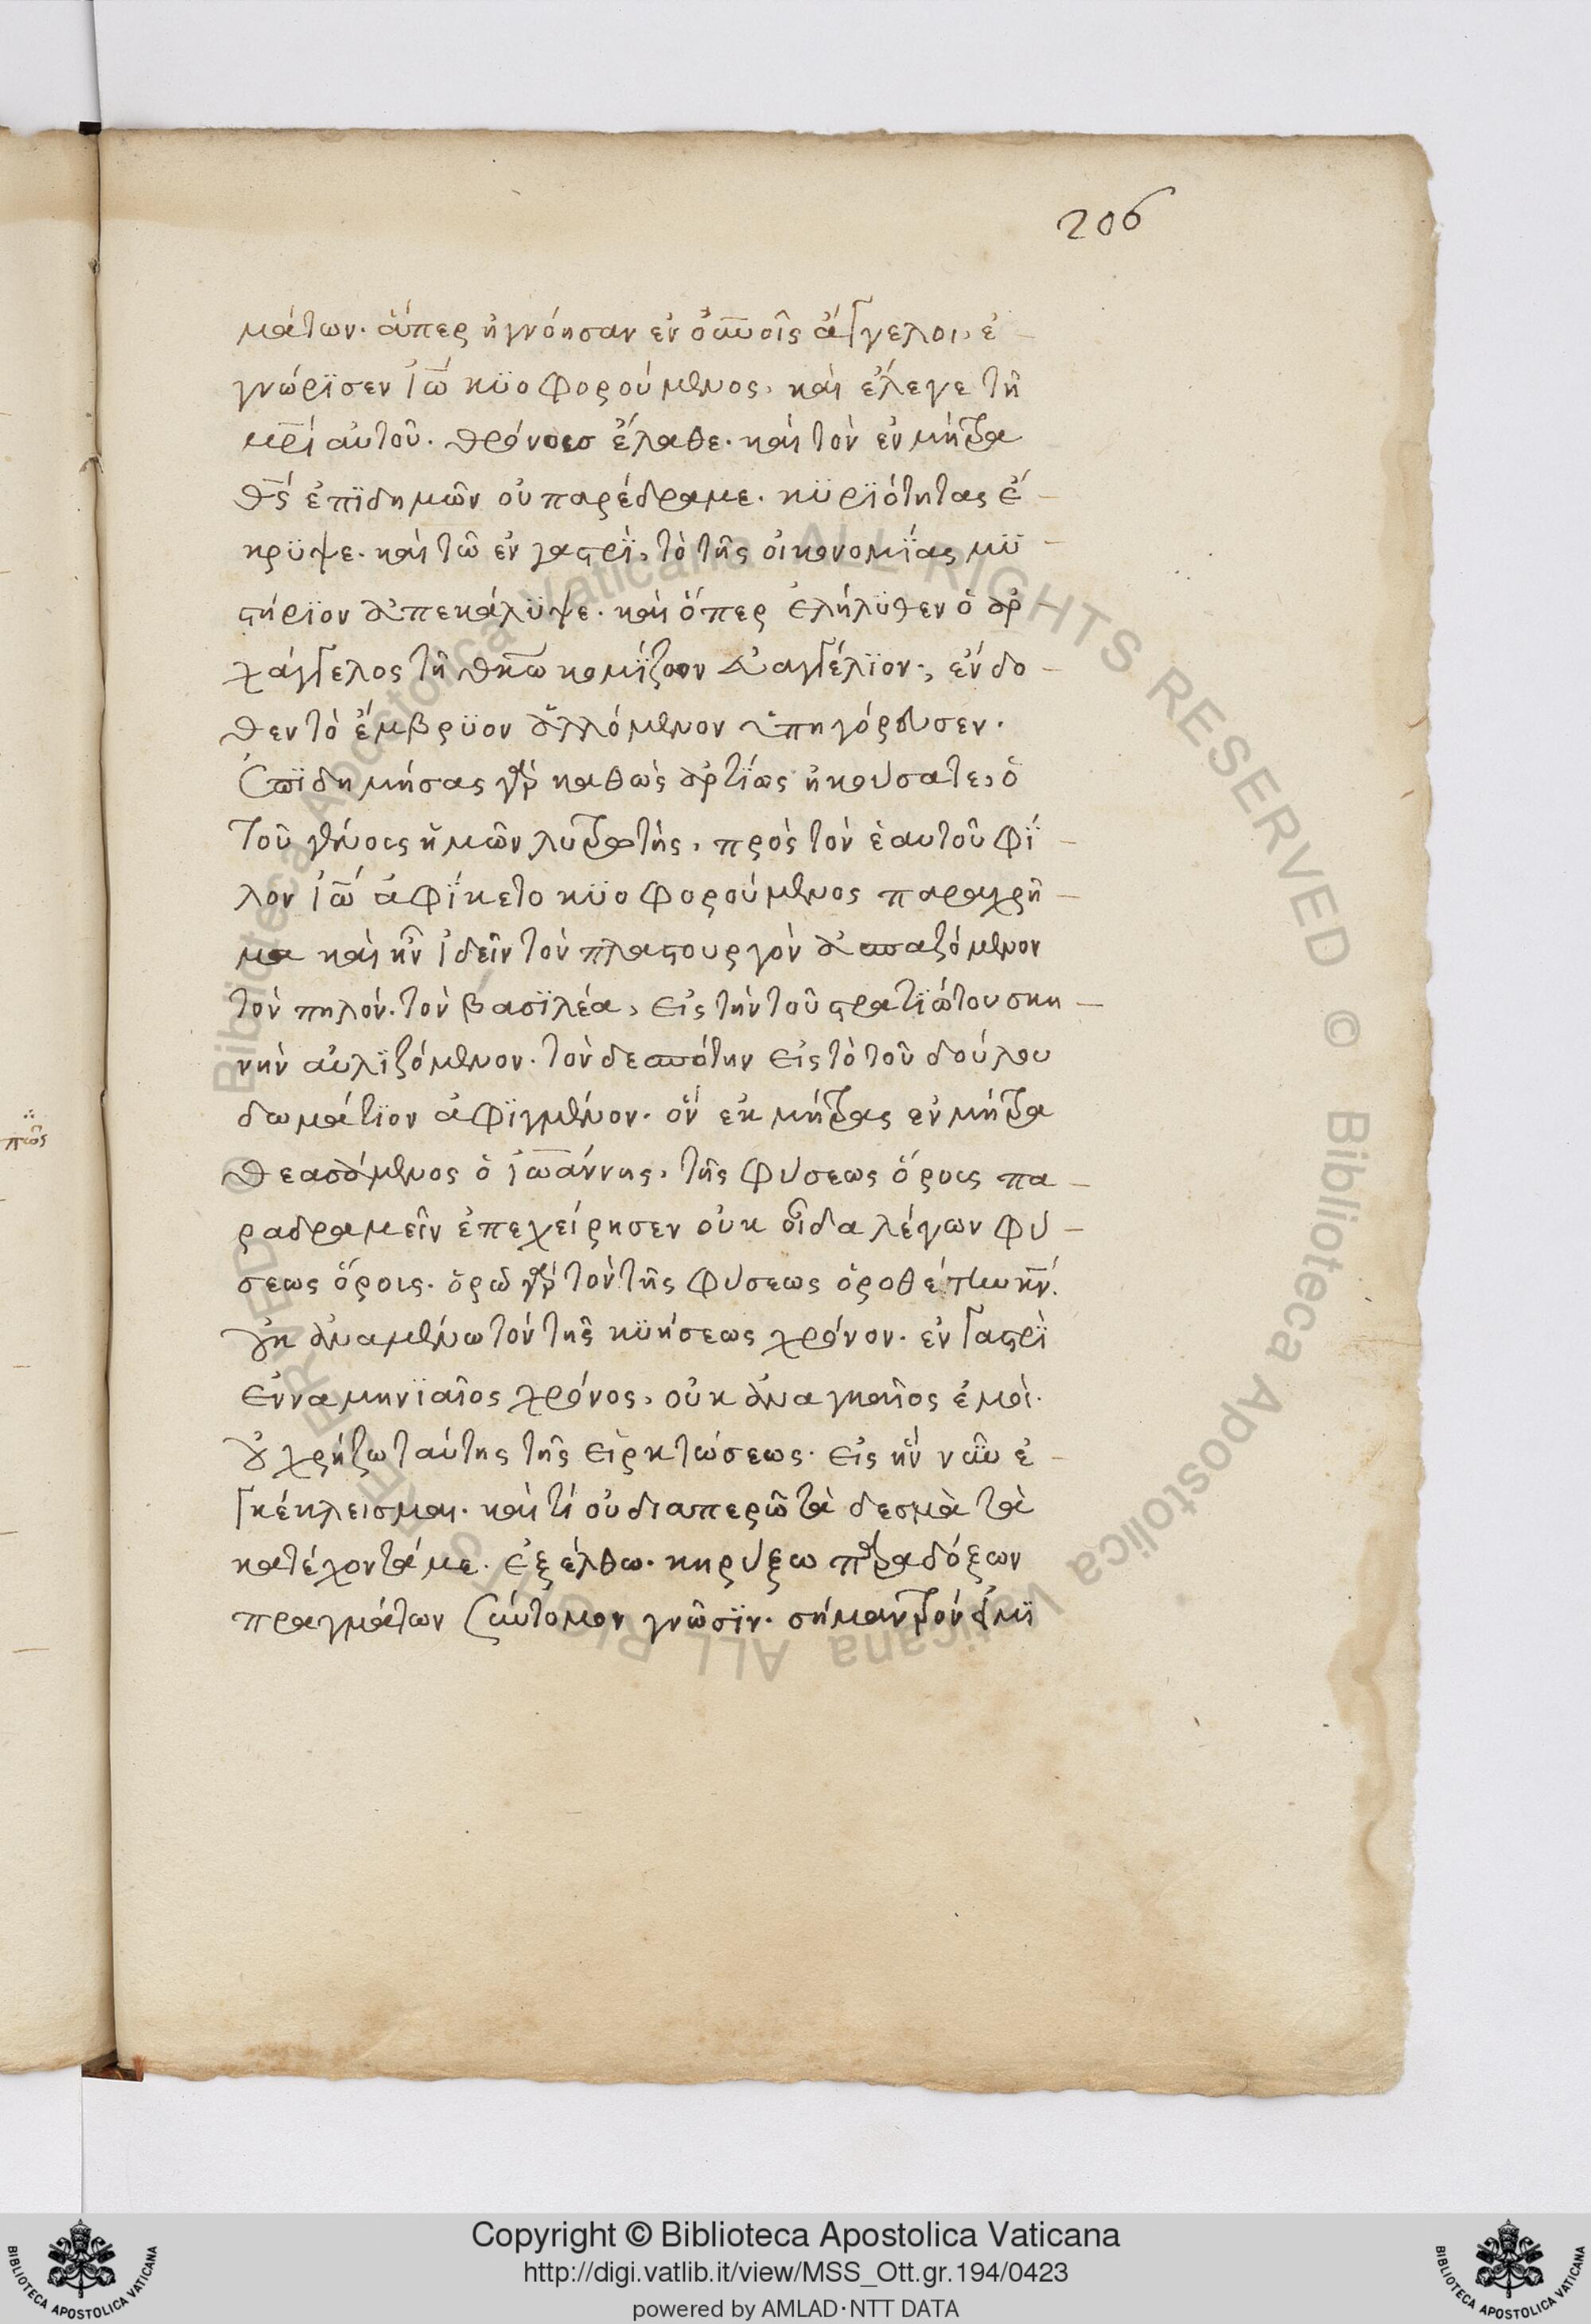 206
μάτων. ἅπερ ἠγνόησαν ἐν οὐνοῖς ἄγγελοι, ἐ-
γνώρϊσεν ἰω κϋοφορούμενος. καὶ ἔλεγε τῆ
μρὶ αὐτοῦ. θρόνους ἔλαθε. καὶ τὸν ἐν μήτρα
θς ἐπϊδημῶν οὐ παρέδραμε. κϋρϊότητας ἔ-
κρϋψε. καὶ τῶ ἐν γαστρϊ, τὸ τῆς οἰκονομίας μϋ-
στήρϊον ἀπεκάλϋψε. καὶ ὅπερ ἐλήλϋθεν ὁ ἀρ
χάγγελος τῆ θκω κομϊζων εὐαγγέλϊον, ἔνδο-
θεν τὸ ἔμβρϋον ἁλλόμενον ὑπηγόρευσεν.
Ἐπϊδημήσας γὰρ καθὼς ἀρτίως ἠκούσατε, ὁ
τοῦ γένους ἡμῶν λυτρωτὴς, πρὸς τὸν ἑαυτοῦ φϊ-
λον ἰω ἀφΐκετο κϋοφορούμενος παραχρῆ-
μα καὶ ἦν ἰδεῖν τὸν πλαστουργὸν ἀσπαζόμενον
τὸν πηλόν. τὸν βασϊλέα, εἰς τὴν τοῦ στρατϊώτου σκη-
νὴν αὐλϊζόμενον. τὸν δεσπότην εἰς τὸ τοῦ δούλου
δωμάτϊον ἀφϊγμένον. ὃν ἐκ μήτρας ἐν μήτρα
θεασάμενος ὁ ἰωάννης, τῆς φύσεως ὅρους πα-
ραδραμεῖν ἐπεχείρησεν οὐκ οἶδα λέγων φύ-
σεως ὅροις. ὁρῶ γὰρ τὸν τῆς φύσεως ὁροθέτην κν.
οὐκ ἀναμένω τὸν τῆς κϋήσεως χρόνον. ἐν γαστρὶ
ἐνναμηνϊαῖος χρόνος, οὐκ ἀναγκαῖος ἐμοὶ.
οὐ χρήζω ταύτης τῆς εἱρκτώσεως. εἰς ἣν νῦν ἐ-
γκέκλεισμαι. καὶ τί οὐ διαπερῶ τὰ δεσμὰ τὰ
κατέχοντά με. ἐξέλθω. κηρύξω παραδόξων
πραγμάτων σύντομον γνῶσϊν. σήμαντρόν εἰμϊ
πῶς
Copyright © Biblioteca Apostolica Vaticana
http://digi.vatlib.it/view/MSS_Ott.gr.194/0423
powered by AMLAD·NTT DATA